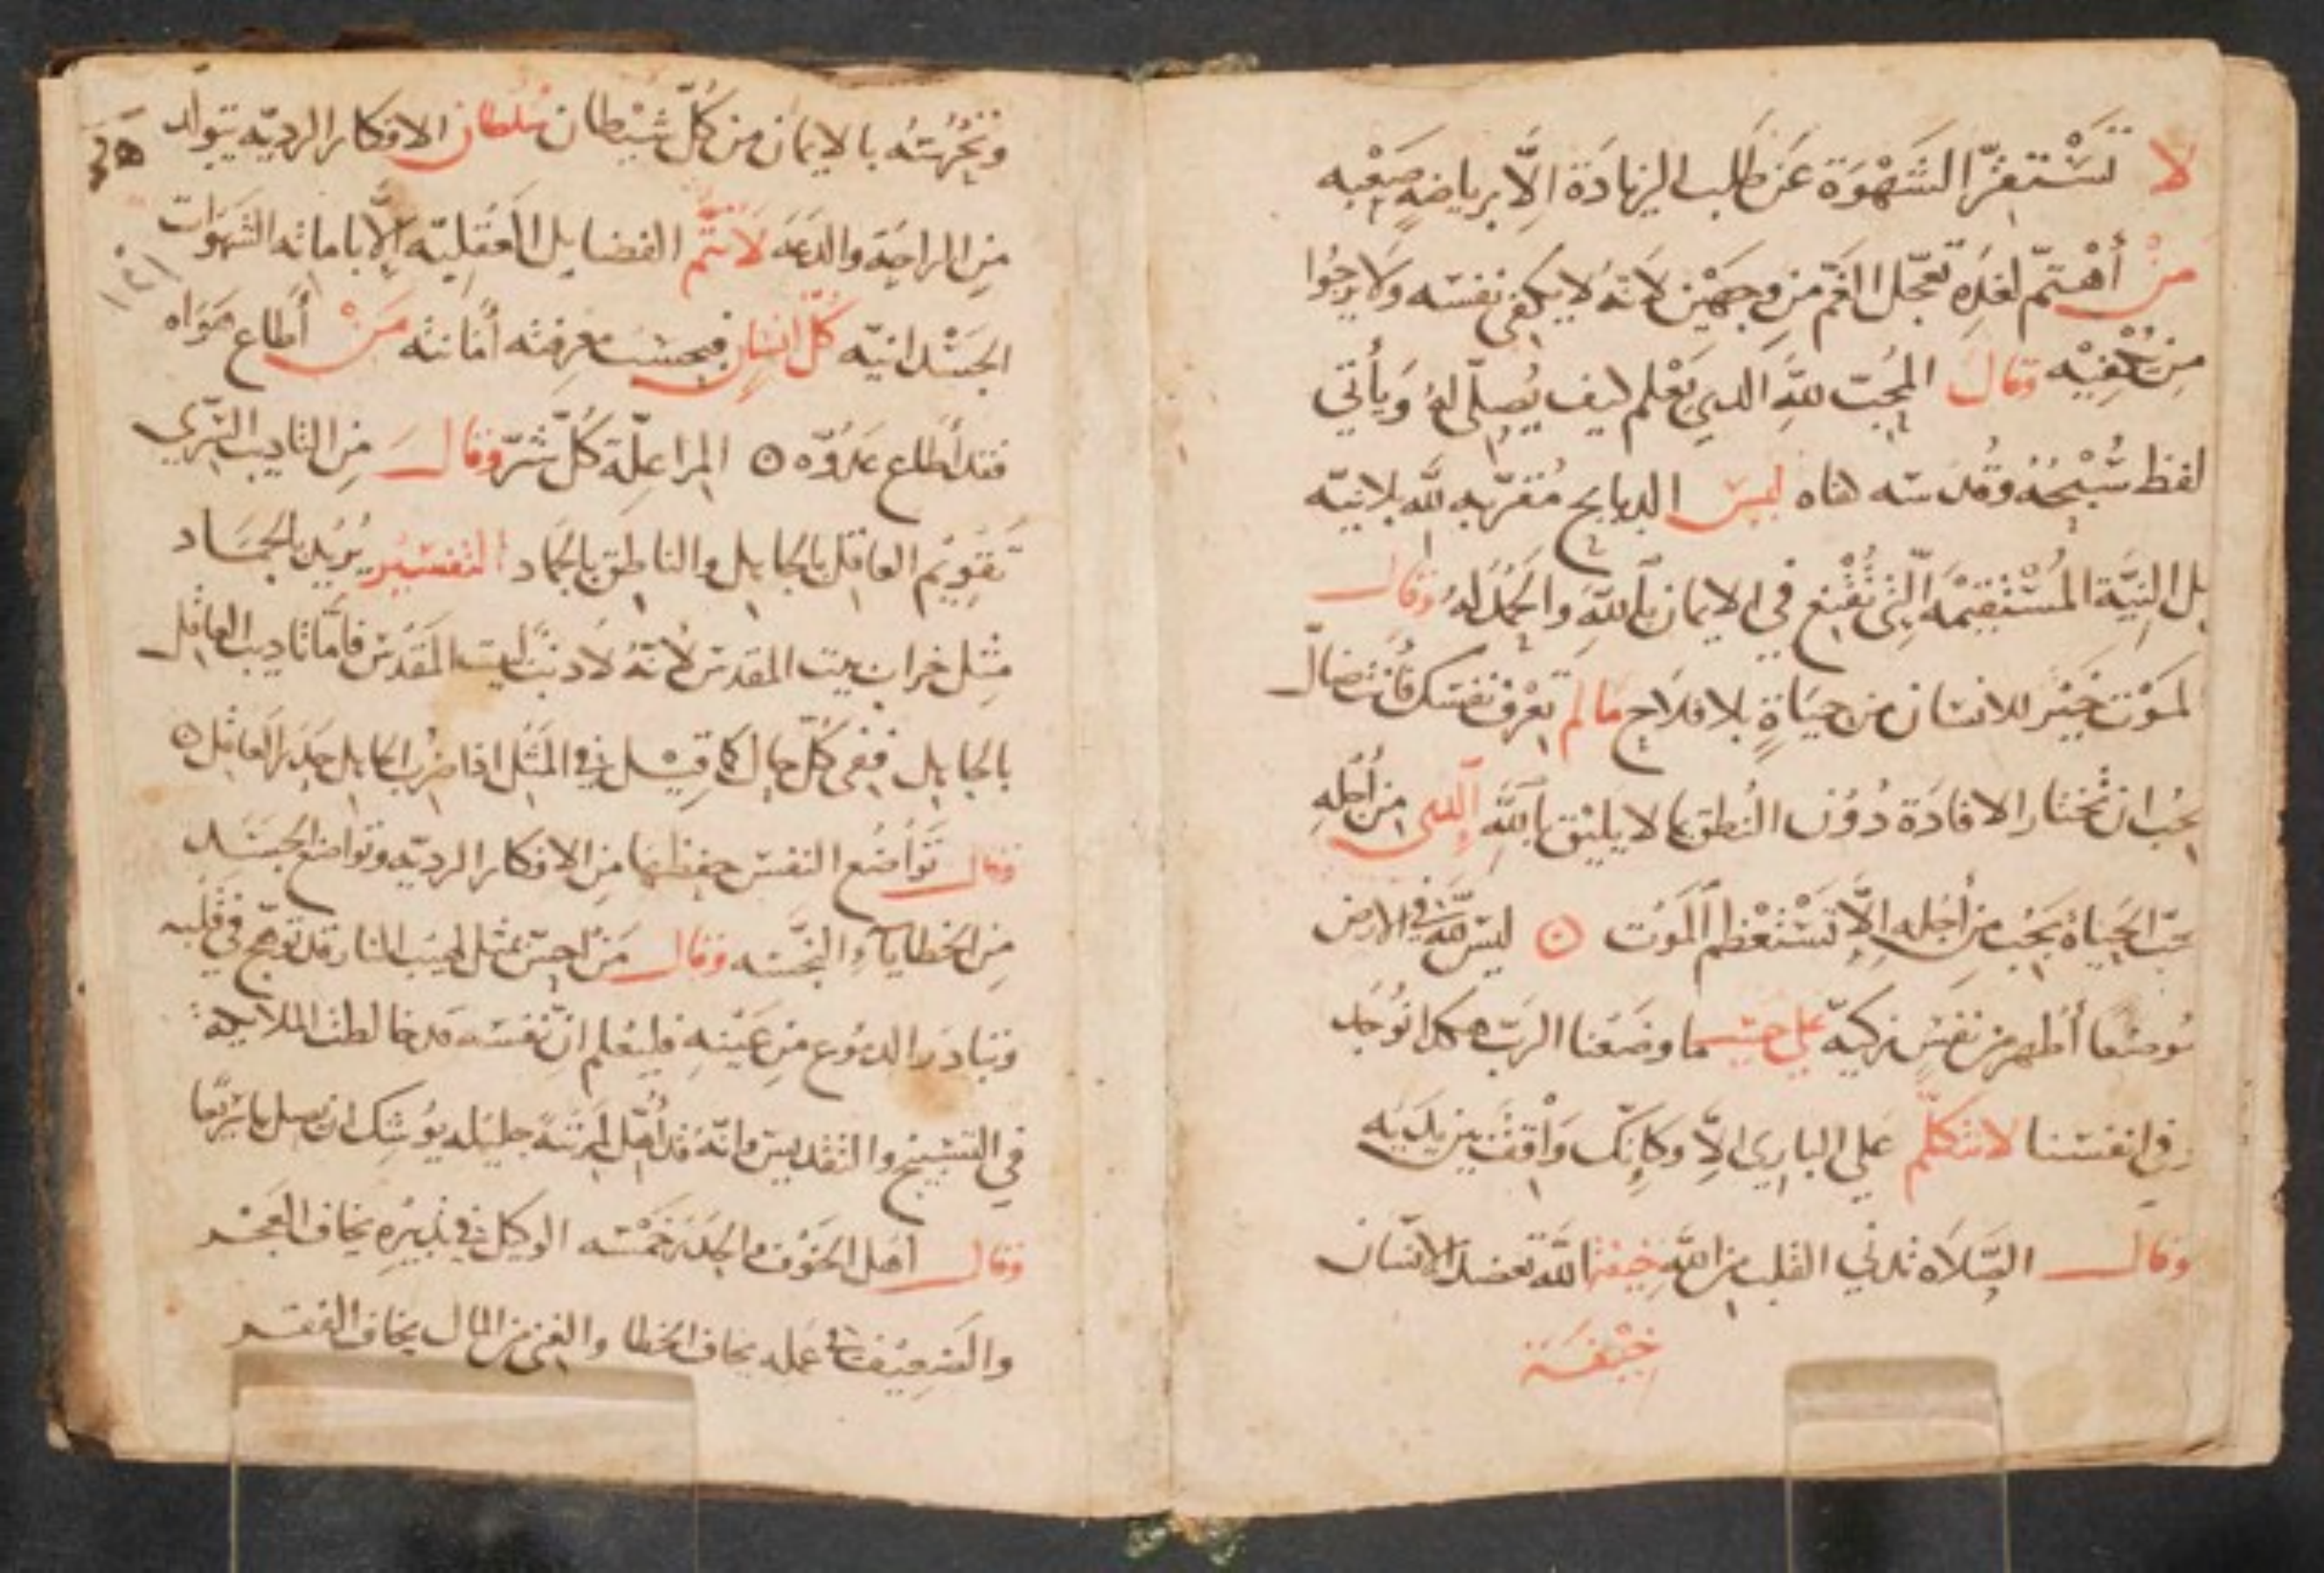 لا تستفزّ الشَهْوَة عَن طَلب الزيادَة الّا برياضةٍ صَعْبه
مَنْ أهْتمّ لغَدِه تعجّل الغَم مِن وجهَيْن لانهُ لا يكفى نفسَه ولا يرجُوا
مِن يكْفِيْه وقال المحُبّ للهَ الدي يَعْلم ليف يُصلّى لهُ وَيأتي
لفظ تسْبيْحُهُ وقُدسَه هناه ليسَ الدبايح مُقرّبه للّه بلا نيّه
بل النيَّة المُسْتقيمْه الّتى تُقْنع في الايمان باللهَ والحَمُد لهُ وقال
لمَوْت خَيْر للانسَان من حيَاةٍ بلا فلاح مَا لم تعْرف نفسَك فأنت ضالّ
يجُب ان تختار الافادَة دُوْن النُطق بما لا يليْق باللهَ الدى من أجْلهِ
تحبّ الحَياة يَجُب مِن أجْله الّا تَسْتعْظم المَوْت ۞ ليسَ للّه في الارض
مُوضعًا أطْهر من نفسٍ زكيّه على حسَب ما وضعَنا الربّ هكدا نُوْجَد
في انفسَنا لا تتكلّم على الباري الّا وكانك وَاقف بين يدَيْه
وقال الصّلاه تدني القلب من اللهَ خيفة اللّه تعضد الانسَان
خيْفَة
وتخُرجُهُ بالايمان من كُلّ شيْطان سُلطان الافكار الرديّه يتولّد
مِن الراحَة والدعَه لاَ تتمُّ الفضايل العَقليّه الّا باماته الشهوَات
الجَسْدانيّه كُلّ انسانٍ فبحسَب معرفته أمانته مَنْ أطاع هوَاه
فقد أطاع عدُوّه ۞ المرا علّة كُلّ شرّ وقال مِن التاديب الرَّدي
تقويْم العاقل بالجاهل والناطق بالجماد التفسَيْر يُريْد بالجمَاد
مثل خراب بيت المقدس لانهُ لا دنبَ لبيت المَقدَس فامّا تاديب العاقل
بالجاهل ففى كُلّ حال كما قيْل في المَثل ادا ضُرب الجاهل حدَر العاقل ۞
وقال تَوَاضُع النفسَ حفظها مِن الافكار الرديّه وتواضع الجسَد
مِن الخطايا والنجَسَه وقال مَن احسّ بمثل لهيب النار قد توَهّج في قلبه
وتبادرَ الدمُوع مِن عَيْنهِ فليعْلم انّ نفسَه قد خالطت الملايكة
في التسْبيح والتقديسَ وانّهُ قد أهّل لمرتبَة جليله يُوشك ان يصل
وقال اهل الخوْف والحدَر خمْسَه الوكيل في تدبيرهِ يخاف العَجْز
والضعيْف في عمَله يخاف الخطا والغنى من المال يخاف الفقر